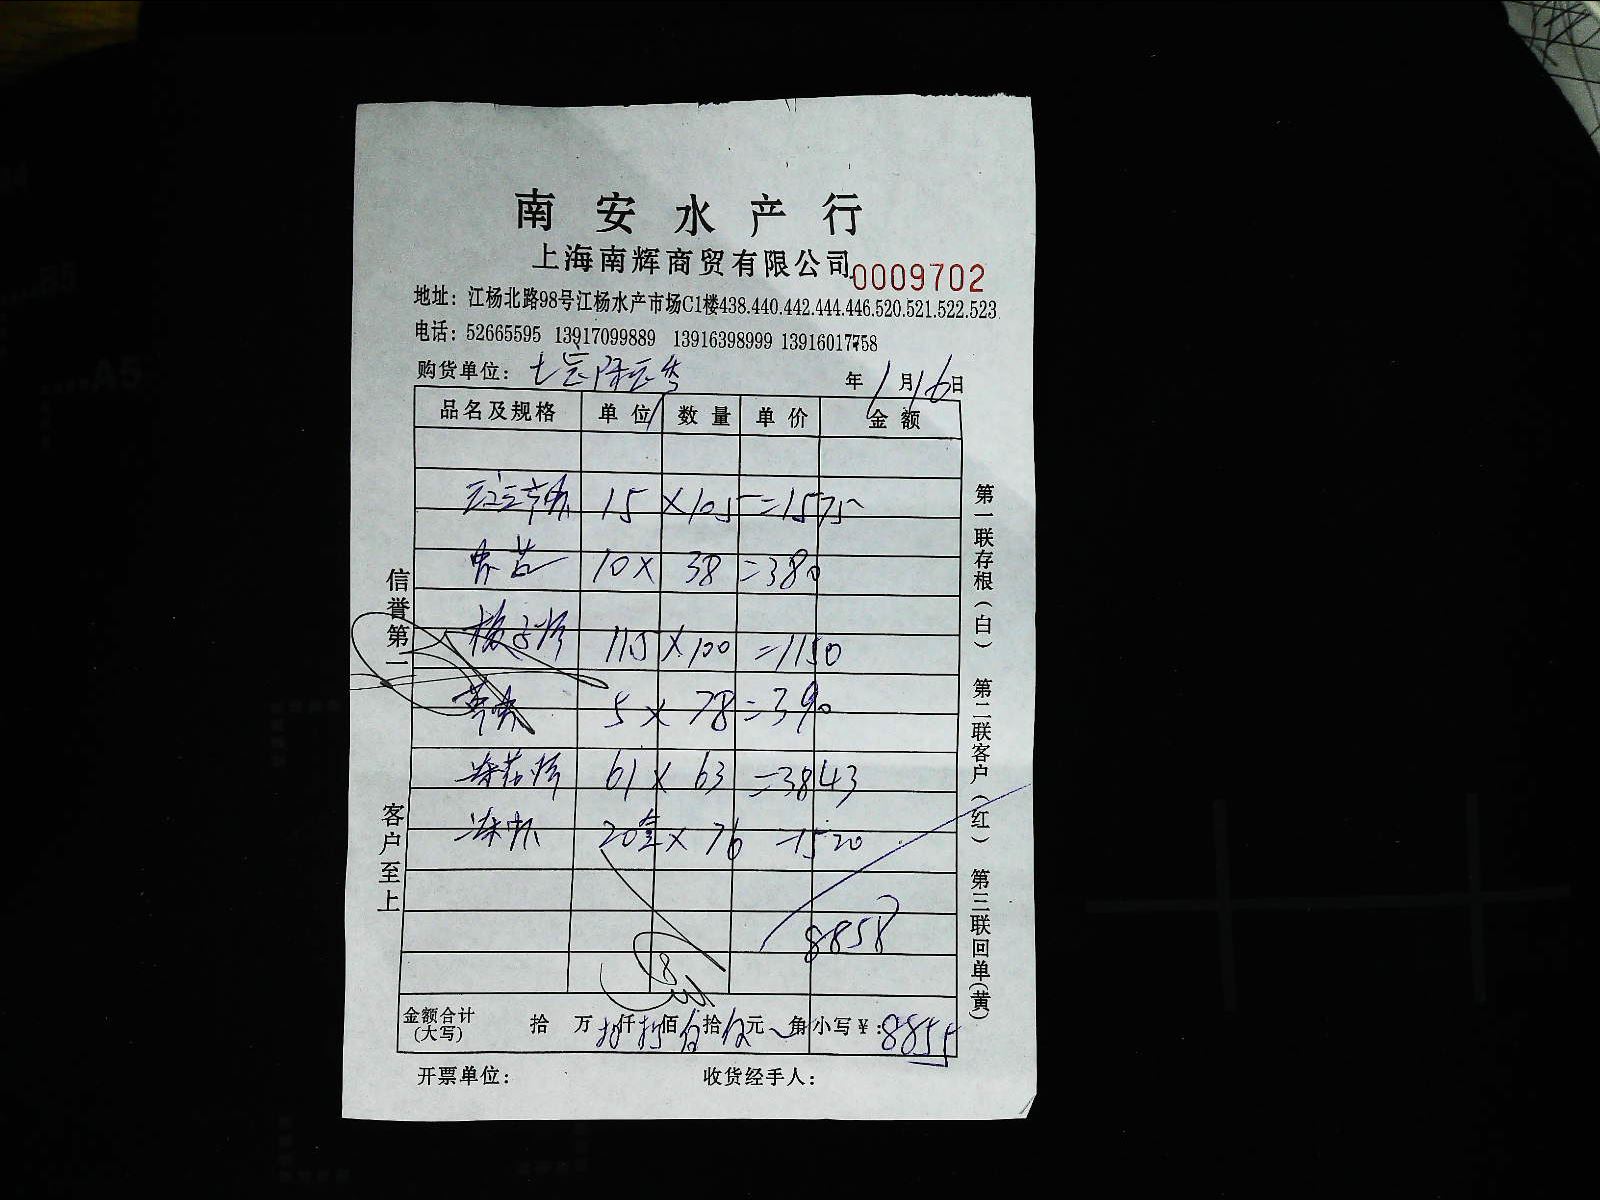 南安水产行
上海南辉商贸有限公司 0009702
地址：江杨北路98号江杨水产市场C1楼438.440.442.444.446.520.521.522.523
电话：52665595 13917099889 13916398999 13916017758
购货单位： 年 1 月 16 日
品名及规格 单位 数量 单价 金额
15 × 105 = 1575
10 × 38 = 380
115 × 100 = 1150
5 × 78 = 390
61 × 63 = 3843
冻 20盒 × 76 = 1520
8858
金额合计(大写) 拾 万 捌 仟 捌 佰 伍 拾 伍 元 角 小写￥：8855
开票单位： 收货经手人：
信誉第一
客户至上
第一联存根(白) 第二联客户(红) 第三联回单(黄)